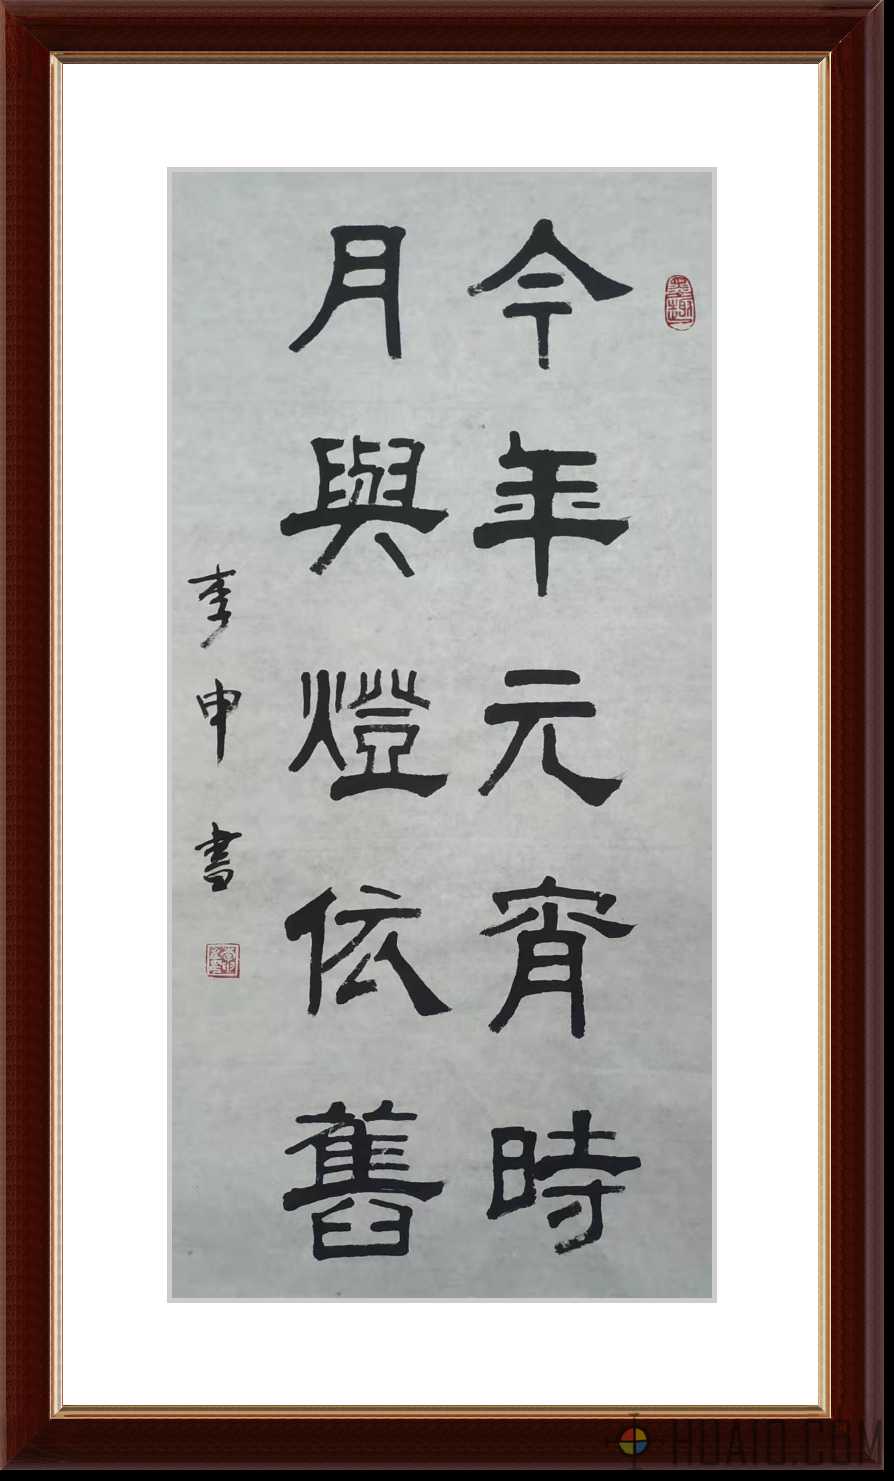 今年元宵時
月與燈依舊
李申書
HUAID.COM